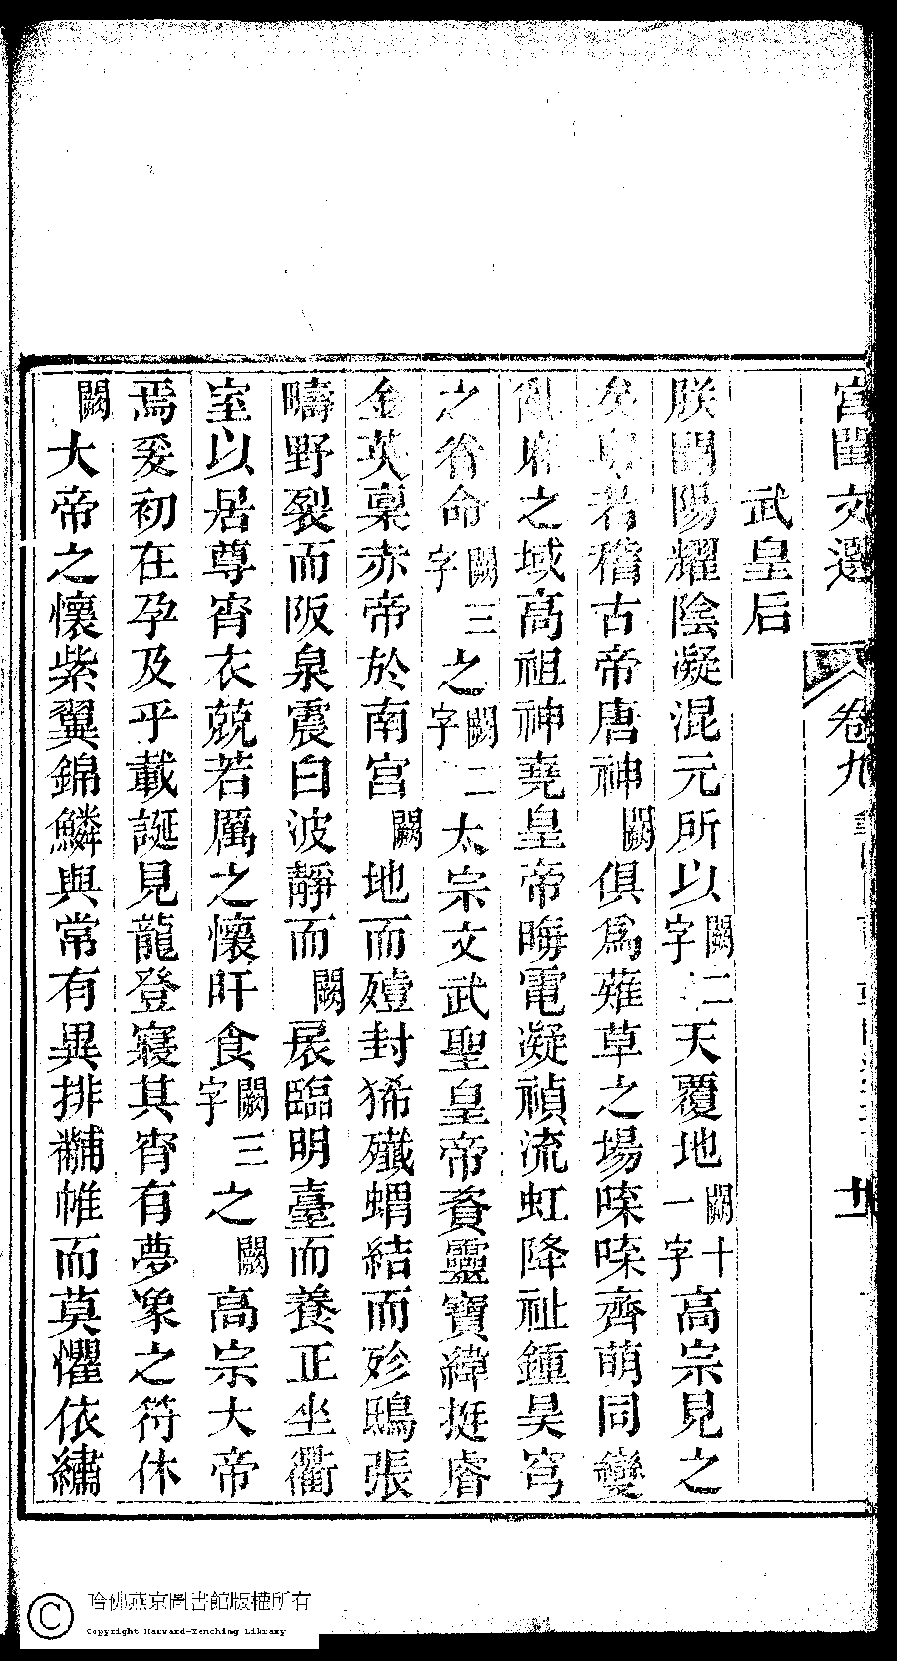 宮閨文選
卷九
十一
武皇后
朕聞陽耀陰凝混元所以闕二字天覆地闕十一字高宗見之
矣粵若稽古帝唐神闕俱爲薙草之場喍喍齊萌同變
亂麻之域高祖神堯皇帝晦電凝禎流虹降祉鍾昊穹
之眷命闕三字之闕二字太宗文武聖皇帝賚靈寶緯挺睿
金英稟赤帝於南宮闕地而殪封狶殲蝟結而殄鴟張
疇野裂而阪泉震白波靜而闕扆臨明臺而養正坐衢
室以居尊宵衣兢若厲之懷旰食闕三字之闕高宗大帝
焉爰初在孕及乎載誕見龍登寢其宵有夢象之符休
闕大帝之懷紫翼錦鱗與常有異排黼帷而莫懼依繡
哈佛燕京圖書館版權所有
© Copyright Harvard-Yenching Library